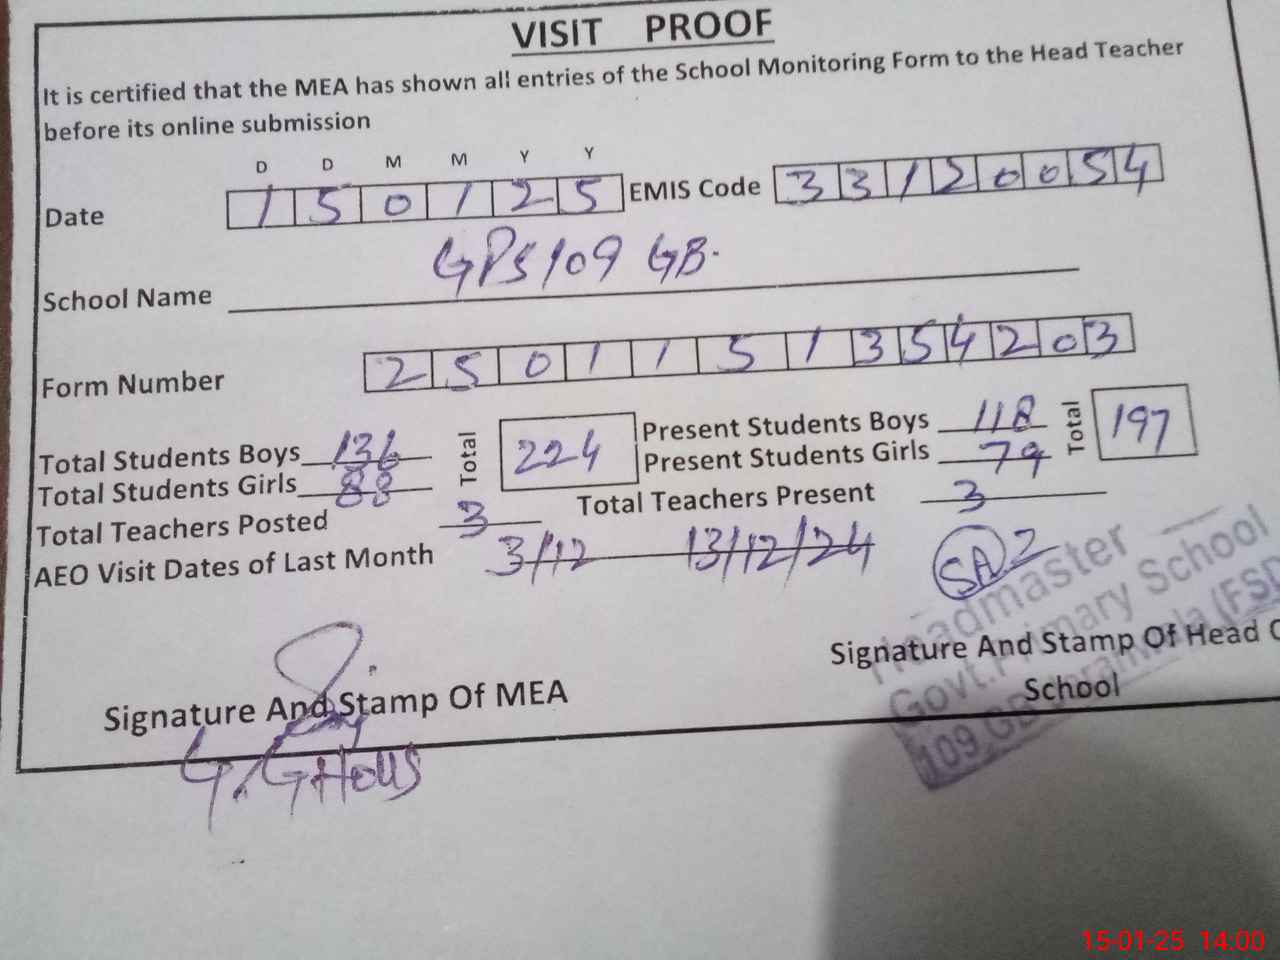 VISIT PROOF
It is certified that the MEA has shown all entries of the School Monitoring Form to the Head Teacher
before its online submission
D D M M Y Y
Date 1 5 0 1 2 5 EMIS Code 3 3 1 2 0 0 5 4
School Name GPS 109 GB.
Form Number 2 5 0 1 1 5 1 3 5 4 2 0 3
Total Students Boys 136 Total 224 Present Students Boys 118 Total 197
Total Students Girls 88 Present Students Girls 79
Total Teachers Posted 3 Total Teachers Present 3
AEO Visit Dates of Last Month 3/12 13/12/24 SA 2
Headmaster
Govt. Primary School
109 GB (FSD
Signature And Stamp Of MEA
Signature And Stamp Of Head O
School
G. GHOUS
15-01-25 14:00